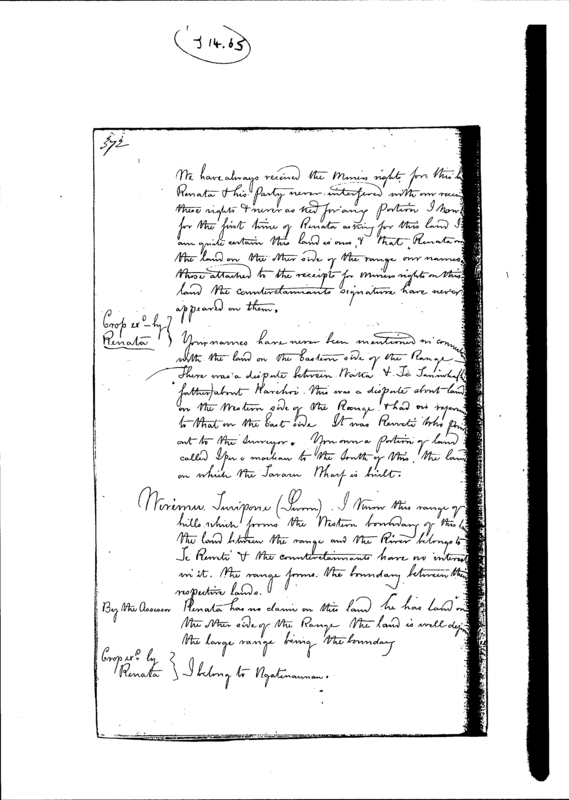 J 14.65
372
We have always received the Miners rights for this
Renata & his Party never interfered with our
these rights & never asked for any Portion I
for the first time of Renata asking for this land I
am quite certain this land is ours & that Renata
the land on the other side of the range our names
those attached to the receipts for miners rights on this
land the counterclaimants signature have never
appeared on them.
Cross exd by
Renata
Your names have never been mentioned in
with the land on the Eastern side of the Range
There was a dispute between & Te
father) about this was a dispute about land
on the Western side of the Range & had no
to that on the East side It was who
out to the Surveyor. You own a Portion of land
called to the South of this, the land
on which the Tararu Wharf is built.
(Sworn). I know this range of
hills which forms the Western boundary of this
the land between the range and the River belongs to
Te & the counterclaimants have no interest
in it. the range forms the boundary between their
respective lands.
By the Assessor Renata has no claim on this land he has land on
the other side of the Range the land is well
the large range being the boundary
Cross exd by
Renata
I belong to Ngatinaunau.